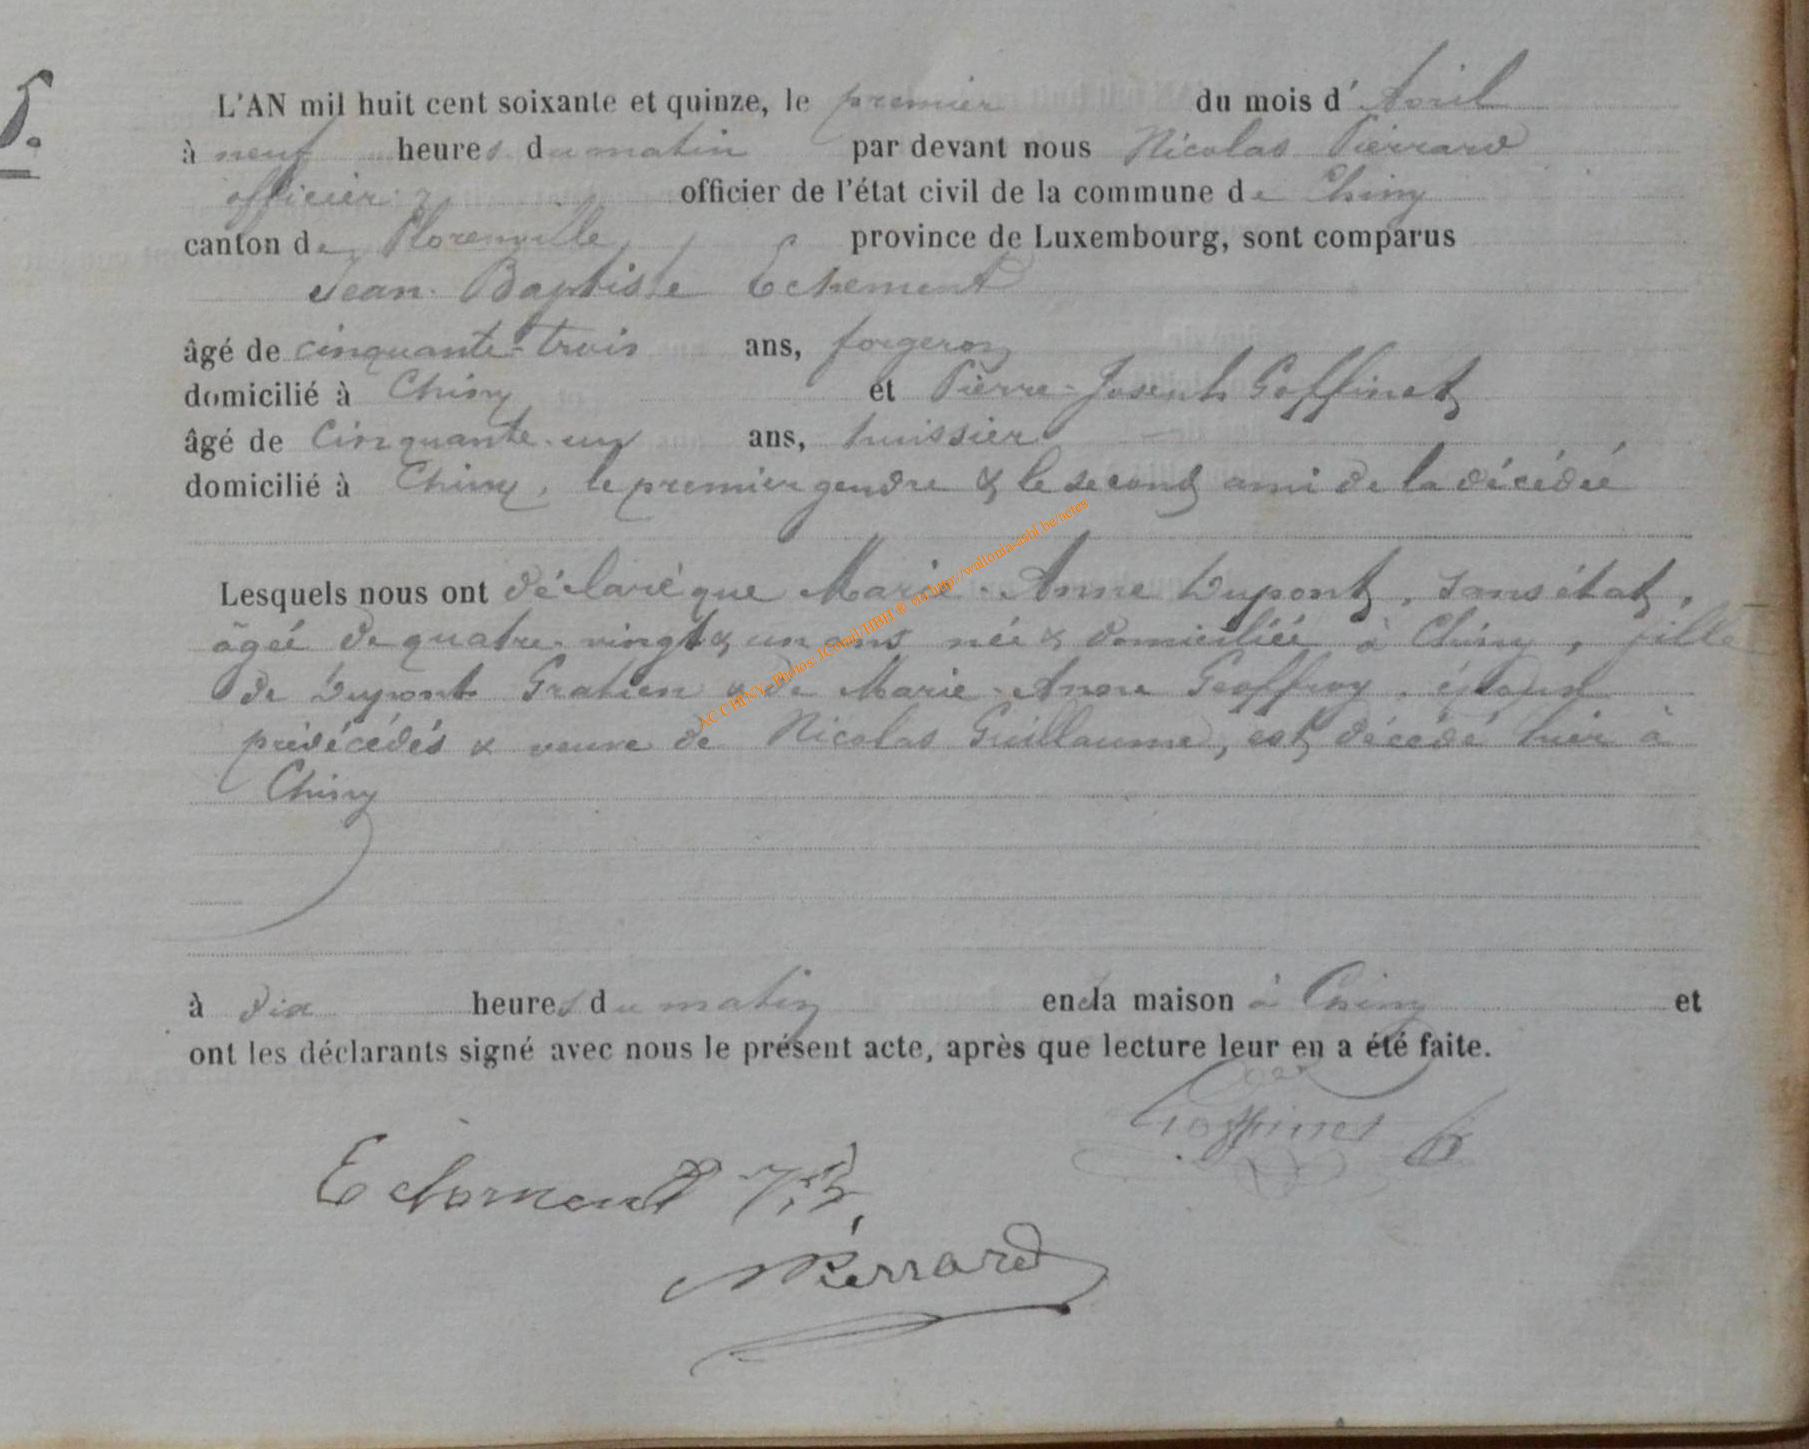 5.
L'AN mil huit cent soixante et quinze, le premier du mois d'Avril
à neuf heures du matin par devant nous Nicolas Pierrard
officier officier de l'état civil de la commune de Chiny
canton de Florenville, province de Luxembourg, sont comparus
Jean-Baptiste Echement
âgé de cinquante-trois ans, forgeron
domicilié à Chiny et Pierre-Joseph Goffinet
âgé de Cinquante-un ans, huissier
domicilié à Chiny, le premier gendre & le second ami de la décédée
Lesquels nous ont déclaré que Marie-Anne Dupont, sans état,
âgée de quatre-vingt & un ans née & domiciliée à Chiny, fille
de Dupont Gratien & de Marie-Anne Geoffroy, époux
prédécédés & veuve de Nicolas Guillaume, est décédé hier à
Chiny
à dix heures du matin en la maison à Chiny et
ont les déclarants signé avec nous le présent acte, après que lecture leur en a été faite.
Goffinet
Echement
NPierrard
AC CHINY- Photos: JConil/HBH ® on http://wallonia-asbl.be/actes